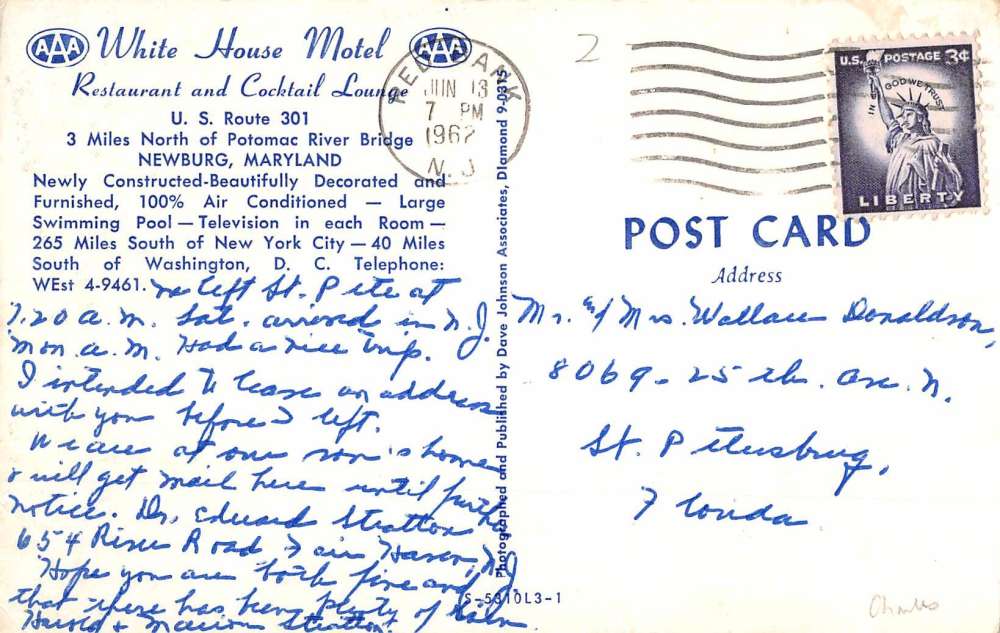 AAA White House Motel AAA
Restaurant and Cocktail Lounge
U. S. Route 301
3 Miles North of Potomac River Bridge
NEWBURG, MARYLAND
Newly Constructed-Beautifully Decorated and
Furnished, 100% Air Conditioned — Large
Swimming Pool — Television in each Room —
265 Miles South of New York City — 40 Miles
South of Washington, D. C. Telephone:
WEst 4-9461.
We left St. Pete at
7.20 a.m. Sat. arrived in N.J.
Mon a.m. Had a nice trip.
I intended to leave an address
with you before I left.
We are at our son's home
& will get mail here until further
notice. Dr. Edward Stratton
654 River Road Fair Haven, N.J.
Hope you are both fine and
that there has been plenty of
Harold & Marion Stratton
Photographed and Published by Dave Johnson Associates, Diamond 9-0315
RED BANK
JUN 13
7 PM
1962
N. J.
2
U.S. POSTAGE 3¢
IN GOD WE TRUST
LIBERTY
POST CARD
Address
Mr. & Mrs. Wallace Donaldson,
8069 - 25 th. Ave. N.
St. Petersburg,
Florida
S-5310L3-1
Charles